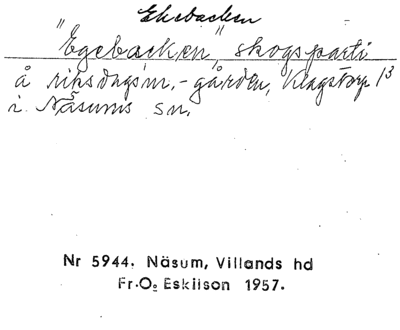 Ekebacken
"Egebacken", skogsparti
å riksdagsm.-gården, Klagstorp 1³
i Näsums sn.
Nr 5944. Näsum, Villands hd
Fr.O. Eskilson 1957.